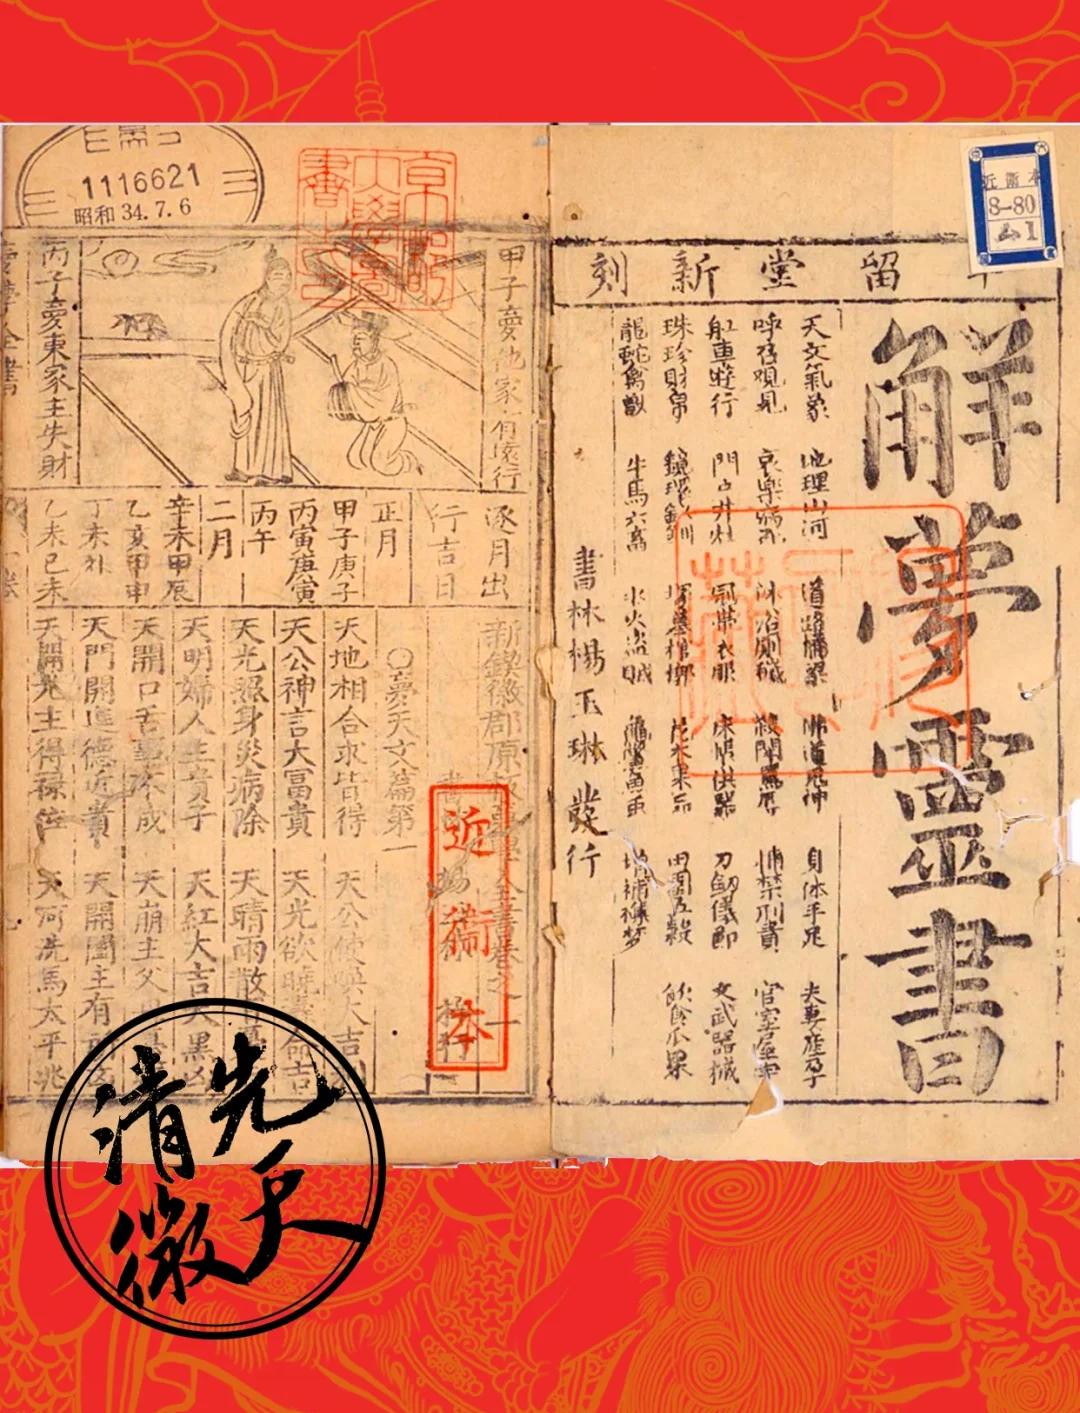 留堂新刻
解夢靈書
天文氣象 地理山河 道路橋梁 佛道鬼神 身体手足 夫妻產孕
呼召覌見 哀樂病死 沐浴厠穢 殺鬪罵辱 捕禁刑責 官室屋宇
舡車遊行 門户井灶 冠帶衣服 床帳 器 刀劔儀節 文武器械
珠珍財帛 鏡環釵釧 墓棺槨 花木果品 田園五穀 飲食瓜果
龍蛇禽獸 牛馬六畜 水火盗賊 增補禳梦
書林楊玉琳發行
近衛本
8-80
ム1
1116621
昭和34.7.6
甲子夢他家有遠行
丙子夢東家主失財
逐月出
行吉日
正月
甲子庚子
丙寅庚寅
丙午
二月
辛未甲辰
乙亥甲申
丁未
乙未己未
新鍥徽郡原板夢學全書卷之一
○夢天文篇第一
天地相合求皆得 天公使喚大吉
天公神言大冨貴 天光欲曉 命吉
天光照身災病除 天晴雨散
天明婦人生貴子 天紅大吉天黒凶
天開口舌事不成 天崩主父母
天門開進德近貴 天開圍主有
天開光主得祿位 天河洗馬太平兆
近衛本
先天
清微